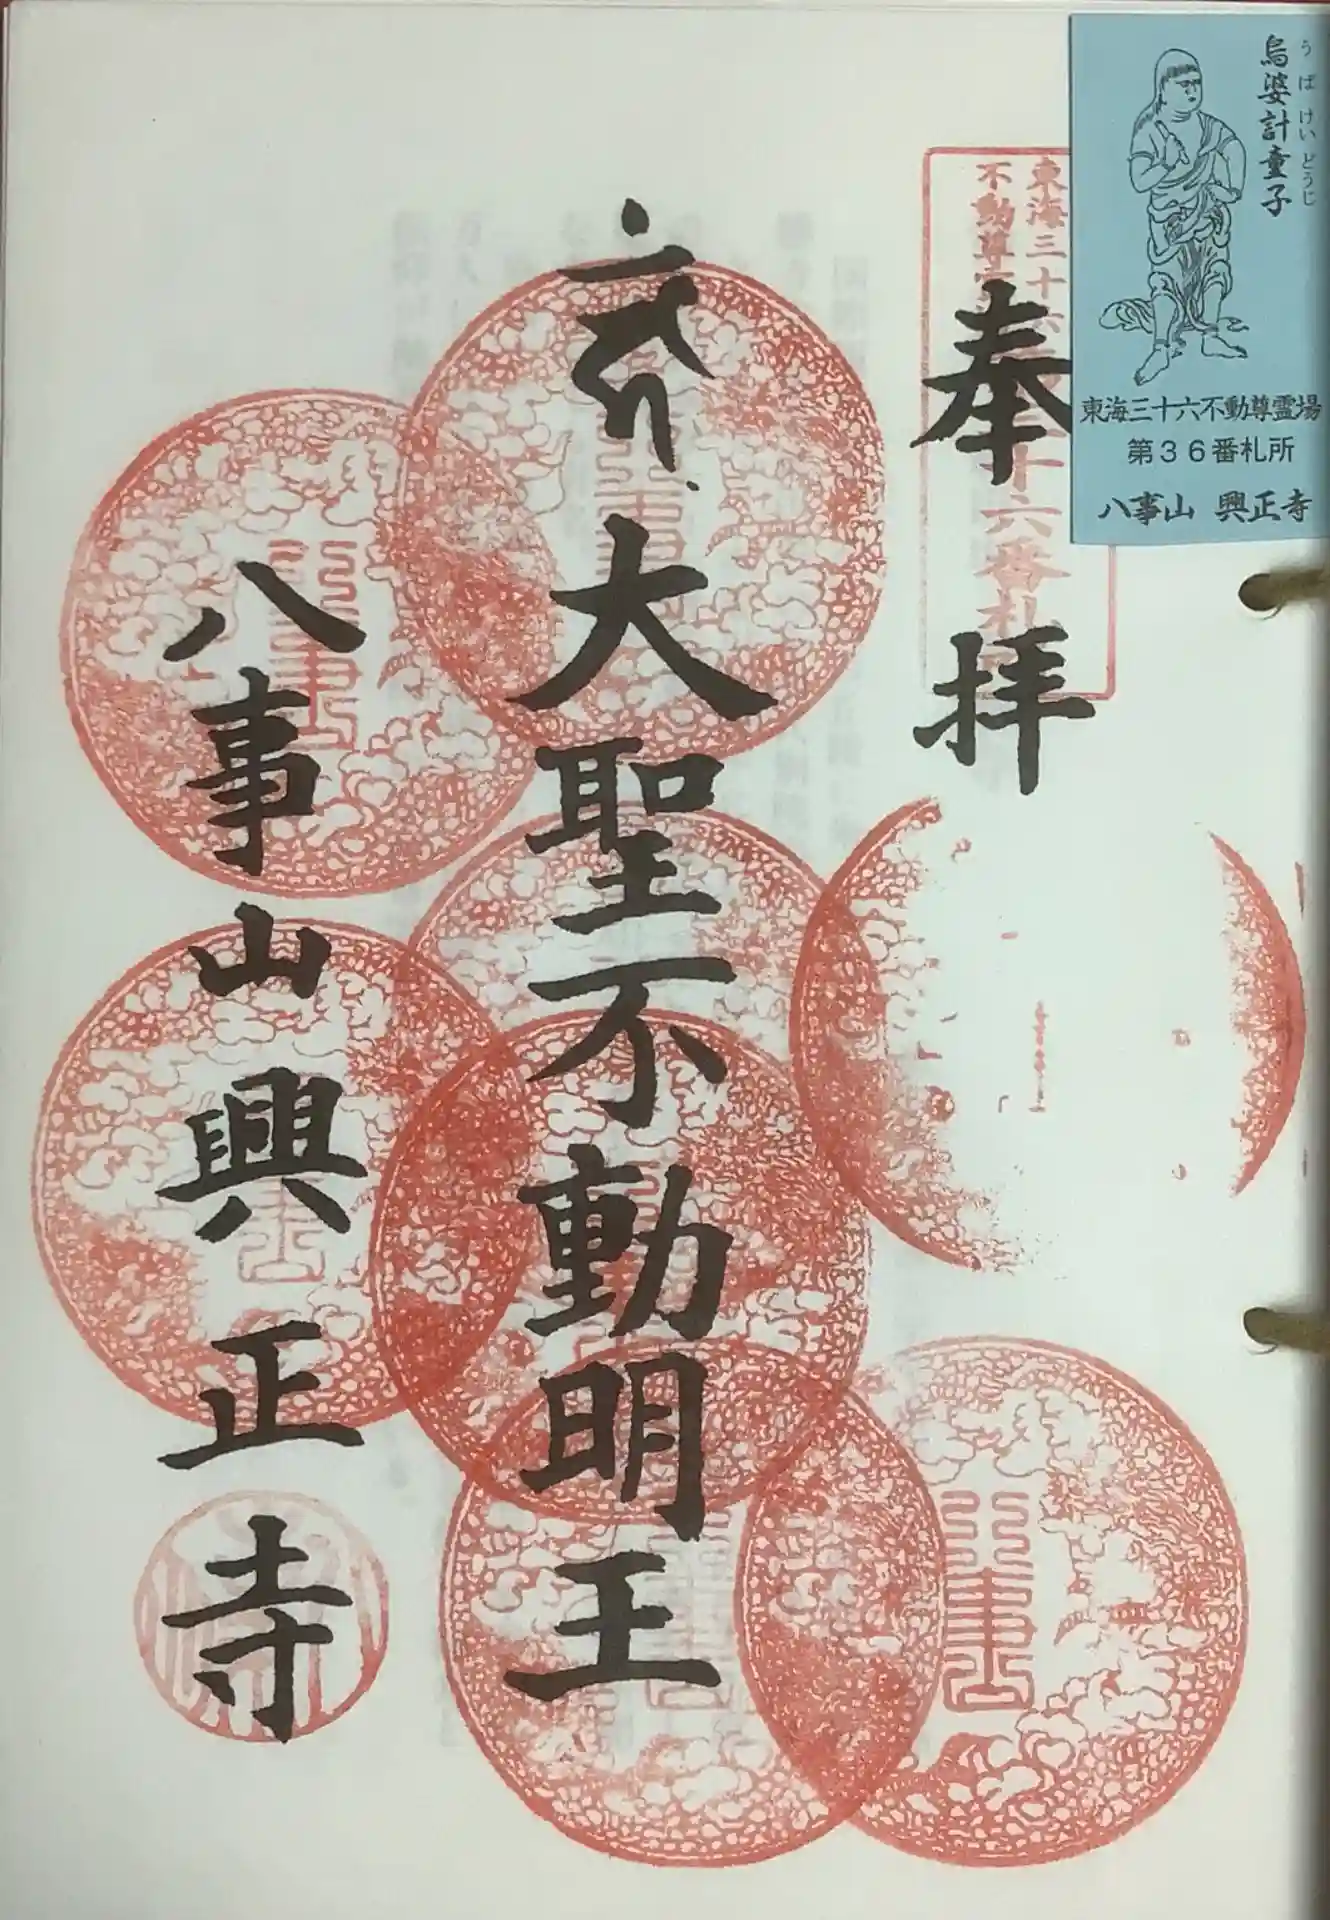 烏婆計童子
うばけいどうじ
東海三十六不動尊霊場
第36番札所
八事山 興正寺
東海三十
不動尊
十六番札
奉拝
大聖不動明王
八事山興正寺